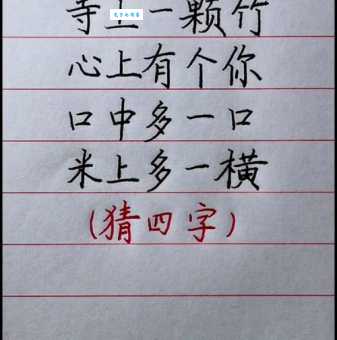 寺上一颗竹
心上有个你
口中多一口
米上多一横
(猜四字)